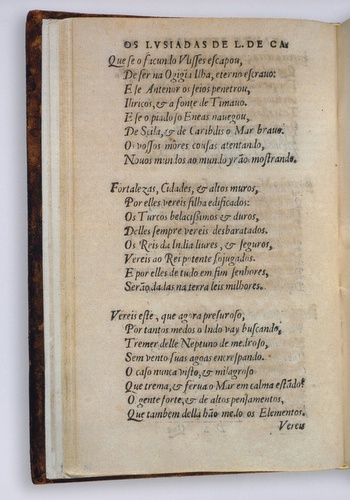 OS LVSIADAS DE L. DE CA.
Que se o facundo Vlisses escapou,
De ser na Ogigia Ilha, eterno escrauo:
E se Antenor os seios penetrou,
Iliricos, & a fonte de Timauo.
E se o piadoso Eneas nauegou,
De Scila, & de Caribdis o Mar brauo.
O vossos môres cousas atentando,
Nouos mundos ao mundo yrão mostrando.
Fortalezas, Cidades, & altos muros,
Por elles vereis filha edificados:
Os Turcos belacissimos & duros,
Delles sempre vereis desbaratados.
Os Reis da India liures, & seguros,
Vereis ao Rei potente sojugados.
E por elles de tudo em fim senhores,
Serão dadas na terra leis milhores.
Vereis este, que agora presuroso,
Por tantos medos o Indo vay buscando,
Tremer delle Neptuno de medroso,
Sem vento suas agoas encrespando.
O caso nunca visto, & milagroso
Que trema, & ferua o Mar em calma estãdo?
O gente forte, & de altos pensamentos,
Que tambem della hão medo os Elementos.
Vereis